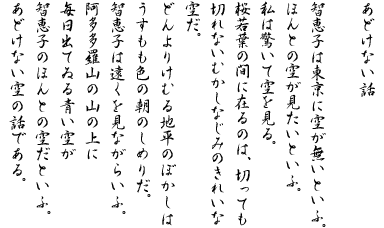 あどけない話
智恵子は東京に空が無いといふ。
ほんとの空が見たいといふ。
私は驚いて空を見る。
桜若葉の間に在るのは、切っても
切れないむかしなじみのきれいな
空だ。
どんよりけむる地平のぼかしは
うすもも色の朝のしめりだ。
智恵子は遠くを見ながらいふ。
阿多多羅山の山の上に
毎日出てゐる青い空が
智恵子のほんとの空だといふ。
あどけない空の話である。